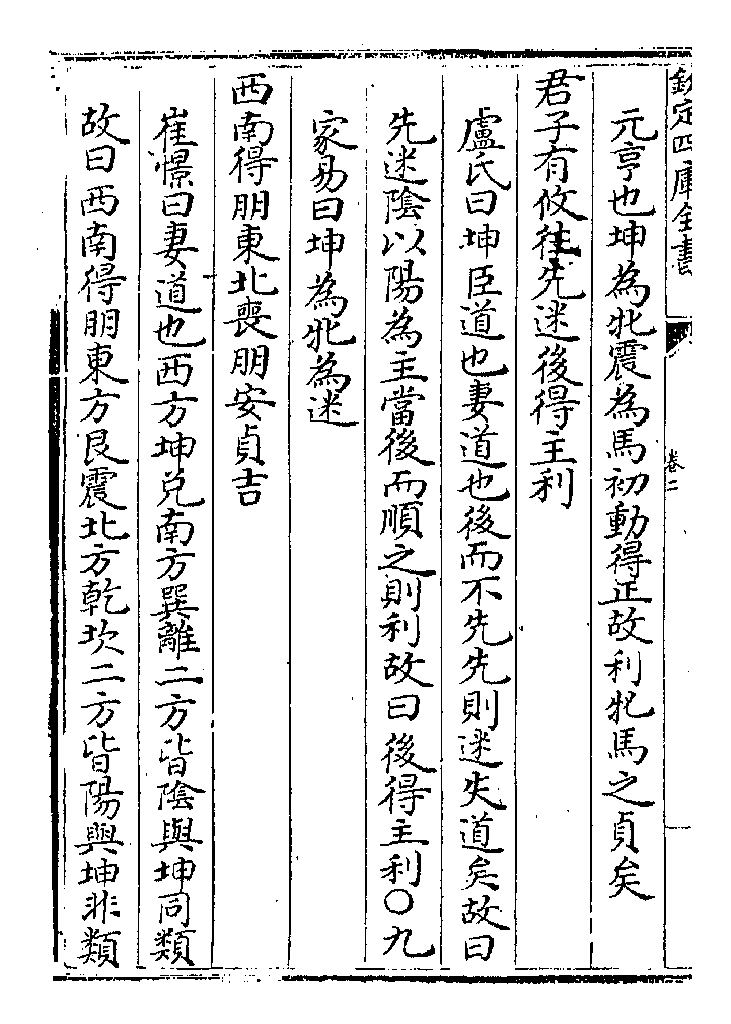 欽定四庫全書
卷二
元亨也坤為牝震為馬初動得正故利牝馬之貞矣
君子有攸往先迷後得主利
盧氏曰坤臣道也妻道也後而不先先則迷失道矣故曰
先迷陰以陽為主當後而順之則利故曰後得主利○九
家易曰坤為牝為迷
西南得朋東北喪朋安貞吉
崔憬曰妻道也西方坤兌南方巽離二方皆陰與坤同類
故曰西南得朋東方艮震北方乾坎二方皆陽與坤非類